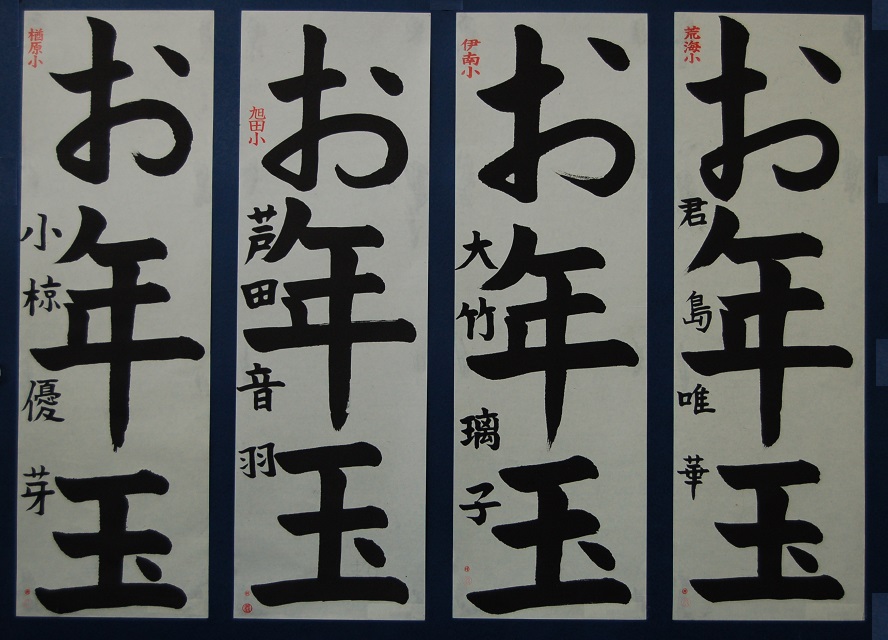 荒海小
お年玉
君島唯華
伊南小
お年玉
大竹璃子
旭田小
お年玉
芦田音羽
楢原小
お年玉
小椋優芽